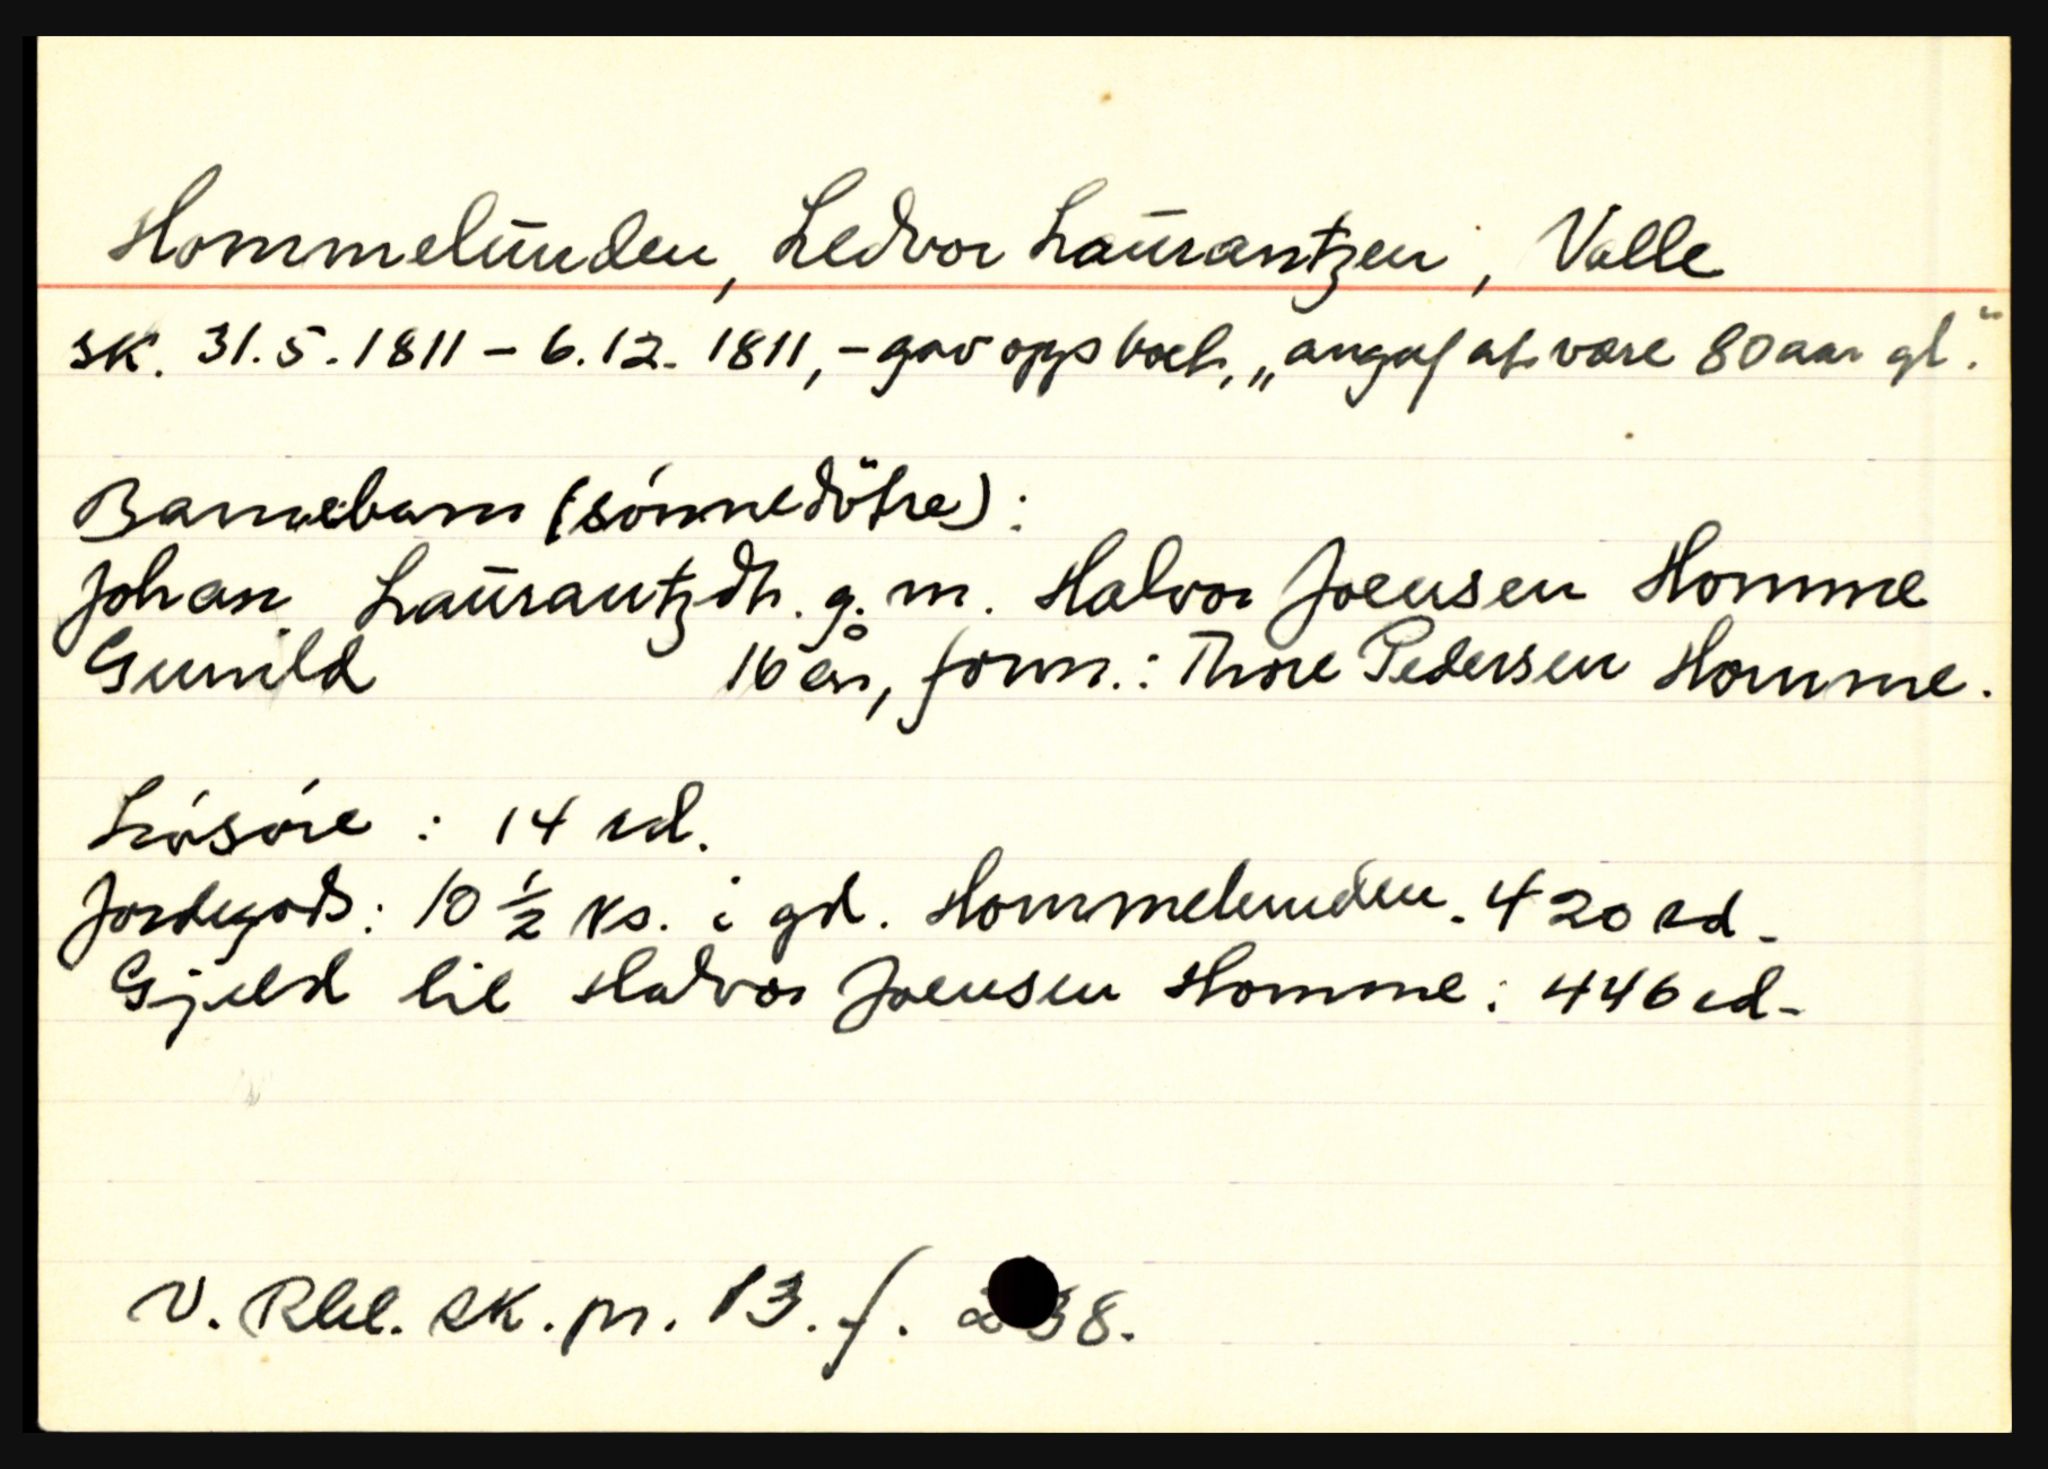 Hommelunden, Ledvor Laurantzen, Valle
sk. 31.5.1811 - 6.12.1811, - gav opps boet, „angaf at være 80 aar gl."
Barnebarn (sønnedøtre):
Johan Laurantzdtr. g. m. Halvor Joensen Homme
Gunild 16 år, form.: Thore Pedersen Homme.
Løsøre : 14 rd.
Jordegods: 10 ½ ks. i gd. Hommelunden. 420 rd.
Gjeld til Halvor Joensen Homme: 446 rd.
V. Rbl. sk. pr. 13. f. 38.